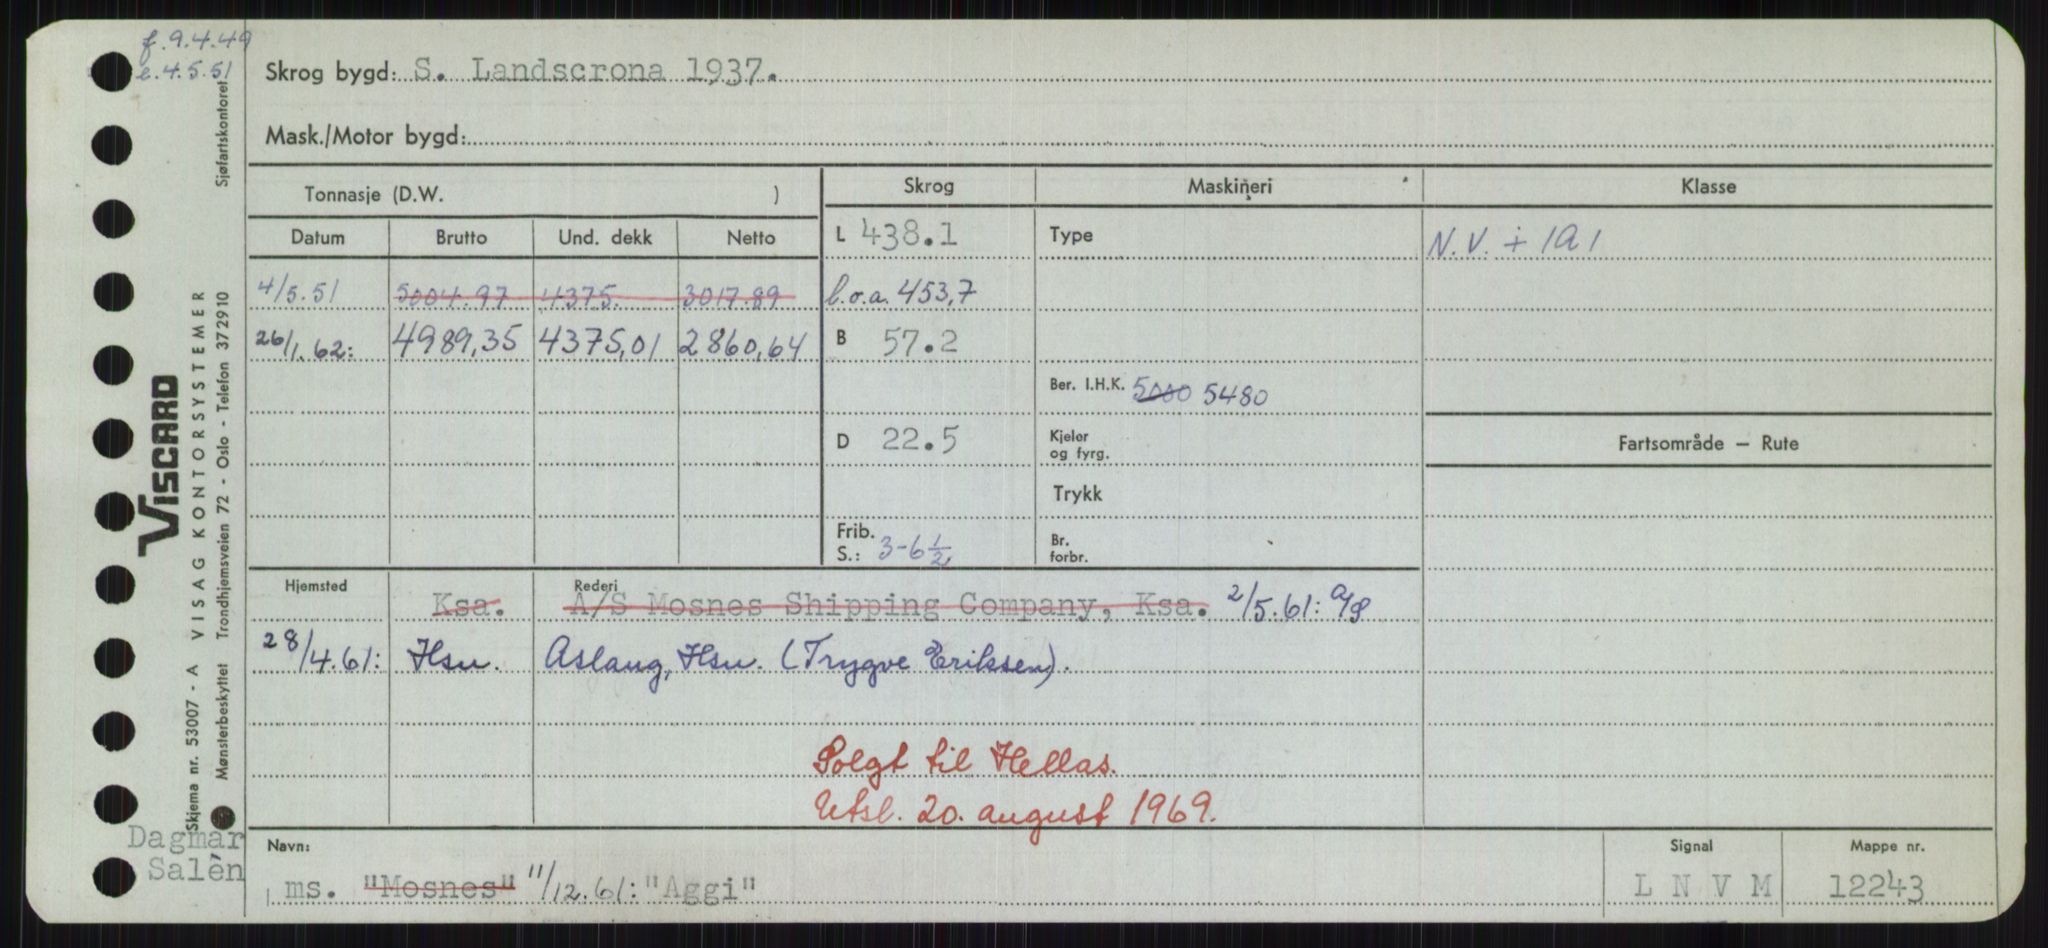 f. 9.4.49
e. 4.5.51
Skrog bygd: S. Landscrona 1937.
Mask./Motor bygd:
Tonnasje (D.W. )
Skrog
Maskineri
Klasse
Datum Brutto Und. dekk Netto
L 438.1
Type
N.V. + 1A1
4/5.51 5004.97 4375. 3017.89
l.o.a. 453,7
26/1.62: 4989,35 4375,01 2860,64
B 57.2
Ber. I.H.K. 5000 5480
D 22.5
Kjeler
og fyrg.
Fartsområde – Rute
Trykk
Frib.
S.: 3-6 1/2
Br.
forbr.
Hjemsted
Rederi
Ksa. A/S Mosnes Shipping Company, Ksa. 2/5.61: A/S
28/4.61: Hsn. Aslaug, Hsn. (Trygve Eriksen).
Solgt til Hellas.
Utsl. 20. august 1969.
Dagmar
Salén
Navn:
ms. "Mosnes" 11/12.61: "Aggi"
Signal
L N V M
Mappe nr.
12243
VISCARD
Skjema nr. 53007 - A VISAG KONTORSYSTEMER
Mønsterbeskyttet Trondhjemsveien 72 - Oslo - Telefon 372910 Sjøfartskontoret